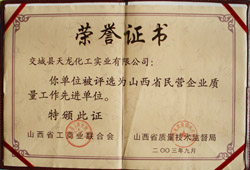 荣誉证书
交城县天龙化工实业有限公司：
你单位被评选为山西省民营企业质
量工作先进单位。
特颁此证
山西省工商业联合会 山西省质量技术监督局
二00三年九月